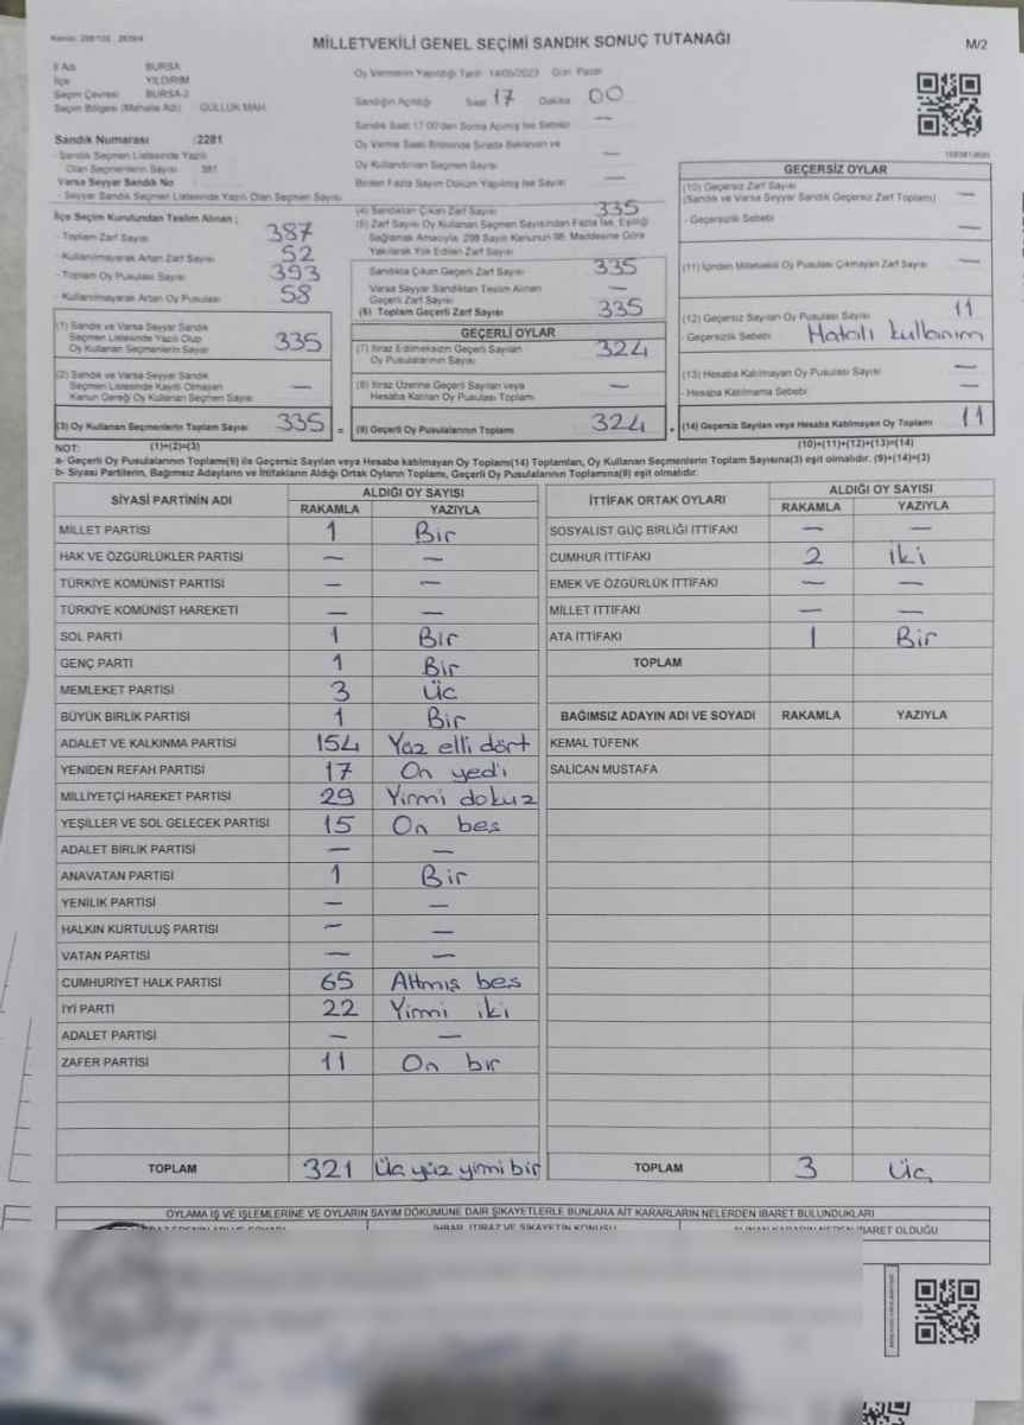 MİLLETVEKİLİ GENEL SEÇİMİ SANDIK SONUÇ TUTANAĞI
M/2
İl Adı BURSA
İlçe YILDIRIM
Seçim Çevresi BURSA-2
Seçim Bölgesi (Mahalle Adı) GÜLLÜK MAH.
Oy Vermenin Yapıldığı Tarih 14/05/2023 Gün Pazar
Sandığın Açıldığı Saat 17 Dakika 00
Sandık Saat 17:00'den Sonra Açılmış İse Sebebi —
Oy Verme Saati Bitiminde Sırada Bekleyen ve
Oy Kullandırılan Seçmen Sayısı —
Birden Fazla Sayım Döküm Yapılmış İse Sayısı —
Sandık Numarası :2281
- Sandık Seçmen Listesinde Yazılı
Olan Seçmenlerin Sayısı 381
Varsa Seyyar Sandık No
- Seyyar Sandık Seçmen Listesinde Yazılı Olan Seçmen Sayısı
İlçe Seçim Kurulundan Teslim Alınan ;
- Toplam Zarf Sayısı 387
- Kullanılmayarak Artan Zarf Sayısı 52
- Toplam Oy Pusulası Sayısı 393
- Kullanılmayarak Artan Oy Pusulası 58
(1) Sandık ve Varsa Seyyar Sandık
Seçmen Listesinde Yazılı Olup
Oy Kullanan Seçmenlerin Sayısı 335
(2) Sandık ve Varsa Seyyar Sandık
Seçmen Listesinde Kayıtlı Olmayan
Kanun Gereği Oy Kullanan Seçmen Sayısı —
(3) Oy Kullanan Seçmenlerin Toplam Sayısı 335 =
(4) Sandıktan Çıkan Zarf Sayısı 335
(5) Zarf Sayısı Oy Kullanan Seçmen Sayısından Fazla İse, Eşitliği
Sağlamak Amacıyla, 298 Sayılı Kanunun 98. Maddesine Göre
Yakılarak Yok Edilen Zarf Sayısı
Sandıkta Çıkan Geçerli Zarf Sayısı 335
Varsa Seyyar Sandıktan Teslim Alınan
Geçerli Zarf Sayısı —
(6) Toplam Geçerli Zarf Sayısı 335
GEÇERLİ OYLAR
(7) İtiraz Edilmeksizin Geçerli Sayılan
Oy Pusulalarının Sayısı 324
(8) İtiraz Üzerine Geçerli Sayılan veya
Hesaba Katılan Oy Pusulası Toplamı —
(9) Geçerli Oy Pusulalarının Toplamı 324 +
GEÇERSİZ OYLAR
(10) Geçersiz Zarf Sayısı
(Sandık ve Varsa Seyyar Sandık Geçersiz Zarf Toplamı) —
- Geçersizlik Sebebi —
(11) İçinden Milletvekili Oy Pusulası Çıkmayan Zarf Sayısı —
(12) Geçersiz Sayılan Oy Pusulası Sayısı 11
- Geçersizlik Sebebi Hatalı kullanım
(13) Hesaba Katılmayan Oy Pusulası Sayısı —
- Hesaba Katılmama Sebebi —
(14) Geçersiz Sayılan veya Hesaba Katılmayan Oy Toplamı 11
NOT: (1)+(2)=(3) (10)+(11)+(12)+(13)=(14)
a- Geçerli Oy Pusulalarının Toplamı(9) ile Geçersiz Sayılan veya Hesaba katılmayan Oy Toplamı(14) Toplamları, Oy Kullanan Seçmenlerin Toplam Sayısına(3) eşit olmalıdır. (9)+(14)=(3)
b- Siyasi Partilerin, Bağımsız Adayların ve İttifakların Aldığı Ortak Oyların Toplamı, Geçerli Oy Pusulalarının Toplamına(9) eşit olmalıdır.
SİYASİ PARTİNİN ADI ALDIĞI OY SAYISI
RAKAMLA YAZIYLA
MİLLET PARTİSİ 1 Bir
HAK VE ÖZGÜRLÜKLER PARTİSİ — —
TÜRKİYE KOMÜNİST PARTİSİ — —
TÜRKİYE KOMÜNİST HAREKETİ — —
SOL PARTİ 1 Bir
GENÇ PARTİ 1 Bir
MEMLEKET PARTİSİ 3 üc
BÜYÜK BİRLİK PARTİSİ 1 Bir
ADALET VE KALKINMA PARTİSİ 154 Yüz elli dört
YENİDEN REFAH PARTİSİ 17 On yedi
MİLLİYETÇİ HAREKET PARTİSİ 29 Yirmi dokuz
YEŞİLLER VE SOL GELECEK PARTİSİ 15 On bes
ADALET BİRLİK PARTİSİ — —
ANAVATAN PARTİSİ 1 Bir
YENİLİK PARTİSİ — —
HALKIN KURTULUŞ PARTİSİ — —
VATAN PARTİSİ — —
CUMHURİYET HALK PARTİSİ 65 Altmış bes
İYİ PARTİ 22 Yirmi iki
ADALET PARTİSİ — —
ZAFER PARTİSİ 11 On bir
TOPLAM 321 üc yüz yirmi bir
İTTİFAK ORTAK OYLARI ALDIĞI OY SAYISI
RAKAMLA YAZIYLA
SOSYALİST GÜÇ BİRLİĞİ İTTİFAKI — —
CUMHUR İTTİFAKI 2 iki
EMEK VE ÖZGÜRLÜK İTTİFAKI — —
MİLLET İTTİFAKI — —
ATA İTTİFAKI 1 Bir
TOPLAM
BAĞIMSIZ ADAYIN ADI VE SOYADI RAKAMLA YAZIYLA
KEMAL TÜFENK
SALİCAN MUSTAFA
TOPLAM 3 üç
OYLAMA İŞ VE İŞLEMLERİNE VE OYLARIN SAYIM DÖKÜMÜNE DAİR ŞİKAYETLERLE BUNLARA AİT KARARLARIN NELERDEN İBARET BULUNDUKLARI
İHBAR, İTİRAZ VE ŞİKAYETİN KONUSU